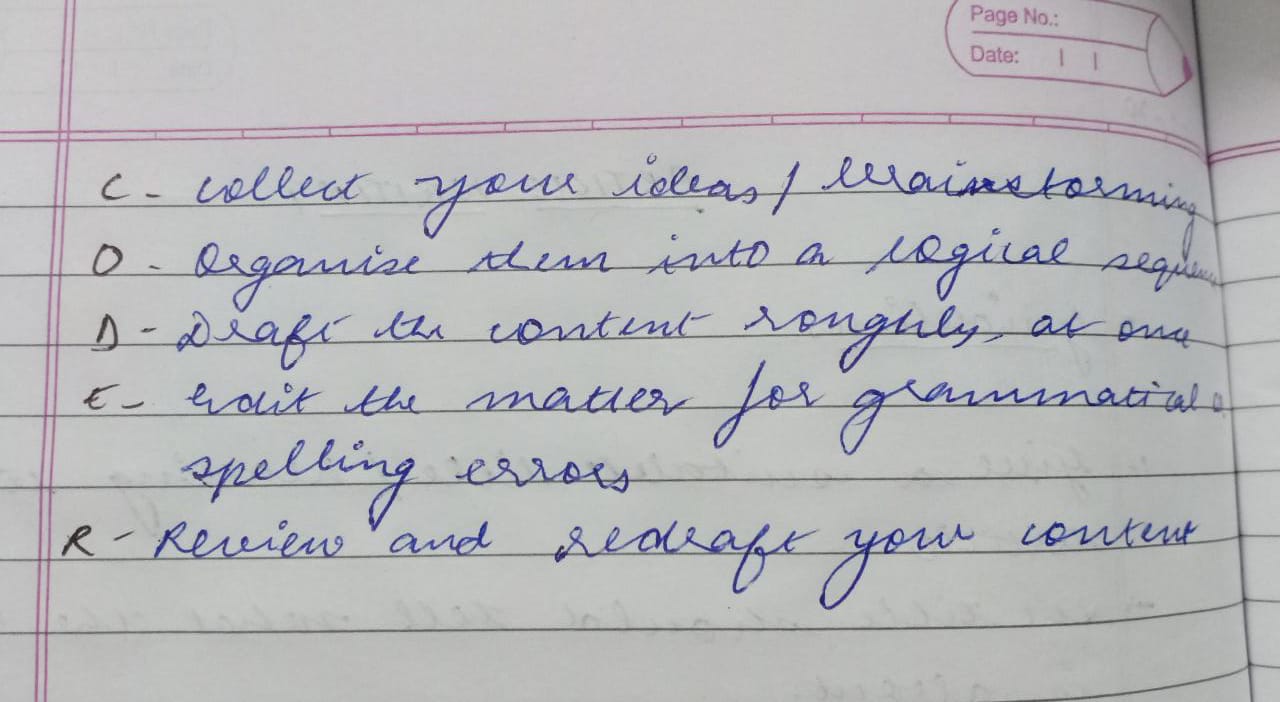 Page No.:
Date:
C - collect your ideas / Brainstorming
O - Organise them into a logical sequence
D - Draft the content roughly, at once
E - Edit the matter for grammatical
spelling errors
R - Review and redraft your content